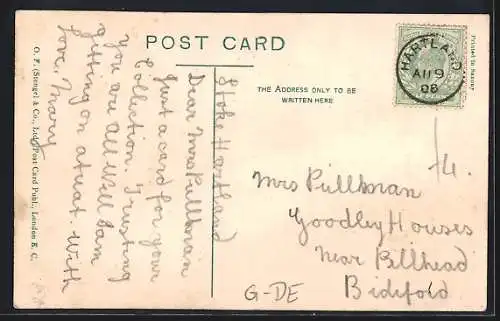 POST CARD
THE ADDRESS ONLY TO BE
WRITTEN HERE
Printed in Saxony
HARTLAND
AU 9
08
Stoke Hartland
Dear Mrs Pullman
Just a card for your
Collection. Trusting
you are all well I am
getting on with
love. Mary
O. F. (Stengel & Co., Ltd) Post Card Publ., London E. C.
Mrs Pullman
Goodley Houses
Near Pillhead
Bideford
G-DE